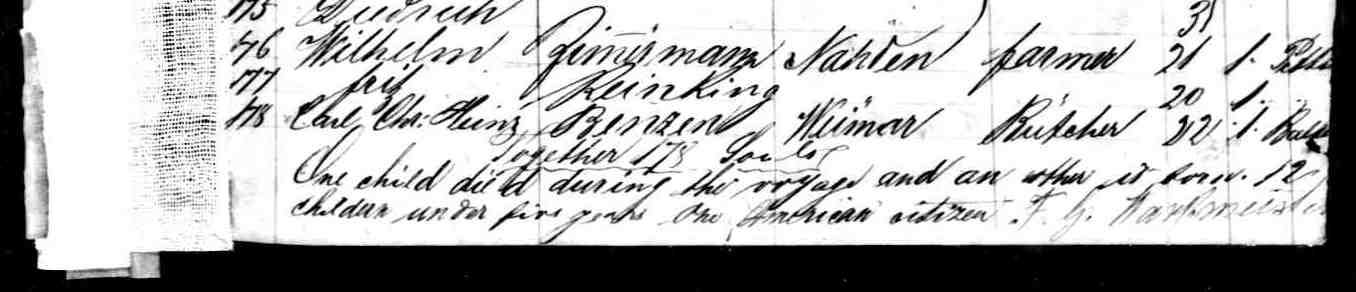 175 Diedrich 31
76 Wilhelm Zimermann Nahden farmer 21 1.
177 Fritz Reinking 20 1.
178 Carl Chr: Heinz Benzen Weimar Butcher 22 1. Balt
Together 178 Souls
One child died during the voyage and an other is born. 12
childern under five years One American citizen F. G.